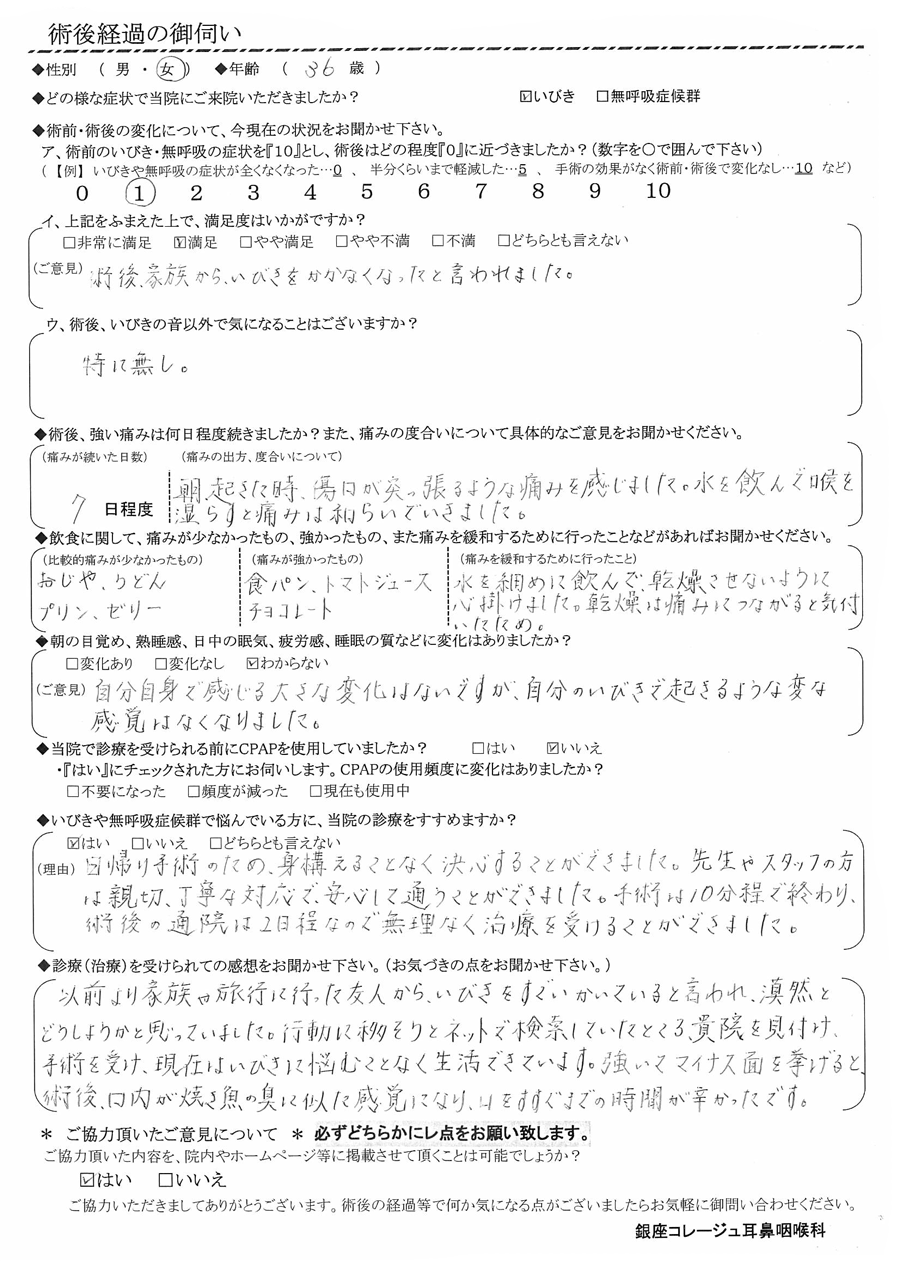 術後経過の御伺い
◆性別 ( 男 ・ 女 ) ◆年齢 ( 36 歳 )
◆どの様な症状で当院にご来院いただきましたか? ☑いびき □無呼吸症候群
◆術前・術後の変化について、今現在の状況をお聞かせ下さい。
ア、術前のいびき・無呼吸の症状を『10』とし、術後はどの程度『0』に近づきましたか?(数字を○で囲んで下さい)
(【例】 いびきや無呼吸の症状が全くなくなった…0 、 半分くらいまで軽減した…5 、 手術の効果がなく術前・術後で変化なし…10 など)
0 1 2 3 4 5 6 7 8 9 10
イ、上記をふまえた上で、満足度はいかがですか?
□非常に満足 ☑満足 □やや満足 □やや不満 □不満 □どちらとも言えない
(ご意見) 術後、家族から、いびきをかかなくなったと言われました。
ウ、術後、いびきの音以外で気になることはございますか?
特に無し。
◆術後、強い痛みは何日程度続きましたか?また、痛みの度合いについて具体的なご意見をお聞かせください。
(痛みが続いた日数) (痛みの出方、度合いについて)
7 日程度 朝、起きた時、傷口が突っ張るような痛みを感じました。水を飲んで喉を
湿らすと痛みは和らいでいきました。
◆飲食に関して、痛みが少なかったもの、強かったもの、また痛みを緩和するために行ったことなどがあればお聞かせください。
(比較的痛みが少なかったもの) (痛みが強かったもの) (痛みを緩和するために行ったこと)
おじや、うどん 食パン、トマトジュース 水を細めに飲んで、乾燥させないように
プリン、ゼリー チョコレート 心掛けました。乾燥は痛みにつながると気付
いたため。
◆朝の目覚め、熟睡感、日中の眠気、疲労感、睡眠の質などに変化はありましたか?
□変化あり □変化なし ☑わからない
(ご意見) 自分自身で感じる大きな変化はないですが、自分のいびきで起きるような変な
感覚はなくなりました。
◆当院で診療を受けられる前にCPAPを使用していましたか? □はい ☑いいえ
・『はい』にチェックされた方にお伺いします。CPAPの使用頻度に変化はありましたか?
□不要になった □頻度が減った □現在も使用中
◆いびきや無呼吸症候群で悩んでいる方に、当院の診療をすすめますか?
☑はい □いいえ □どちらとも言えない
(理由) 日帰り手術のため、身構えることなく決心することができました。先生やスタッフの方
は親切、丁寧な対応で、安心して通うことができました。手術は10分程で終わり、
術後の通院は2日程なので無理なく治療を受けることができました。
◆診療(治療)を受けられての感想をお聞かせ下さい。(お気づきの点をお聞かせ下さい。)
以前より家族や旅行に行った友人から、いびきをすごいかいていると言われ、漠然と
どうしようかと思っていました。行動に移そうとネットで検索していたところ、貴院を見付け、
手術を受け、現在はいびきに悩むことなく生活できています。強いてマイナス面を挙げると、
術後、口内が焼き魚の臭に似た感覚になり、口をすすぐまでの時間が辛かったです。
* ご協力頂いたご意見について * 必ずどちらかにレ点をお願い致します。
ご協力頂いた内容を、院内やホームページ等に掲載させて頂くことは可能でしょうか?
☑はい □いいえ
ご協力いただきましてありがとうございます。術後の経過等で何か気になる点がございましたらお気軽に御問い合わせください。
銀座コレージュ耳鼻咽喉科